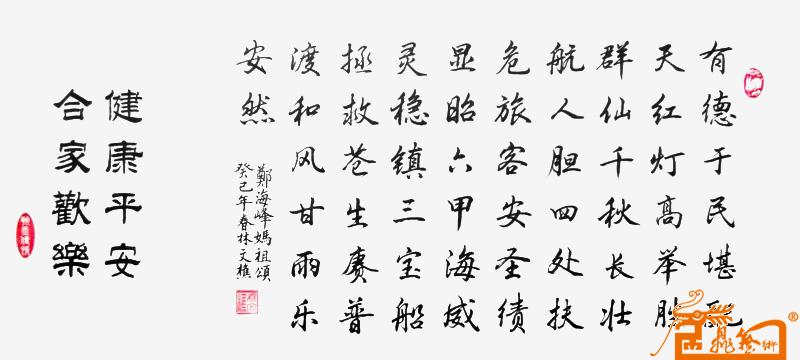 有德于民堪配
天红灯高举胜
群仙千秋长壮
航人胆四处扶
危旅客安圣绩
显昭六甲海威
灵稳镇三宝船
拯救苍生赓普
渡和风甘雨乐
安然
鄭海峰媽祖頌
癸巳年春林文樵
健康平安
合家歡樂